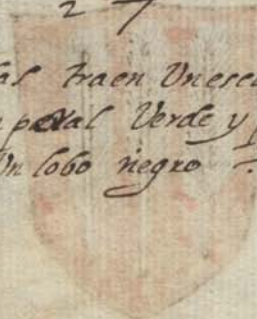 2 7
las traen Vnesc
peral Verde y
Vn lobo negro